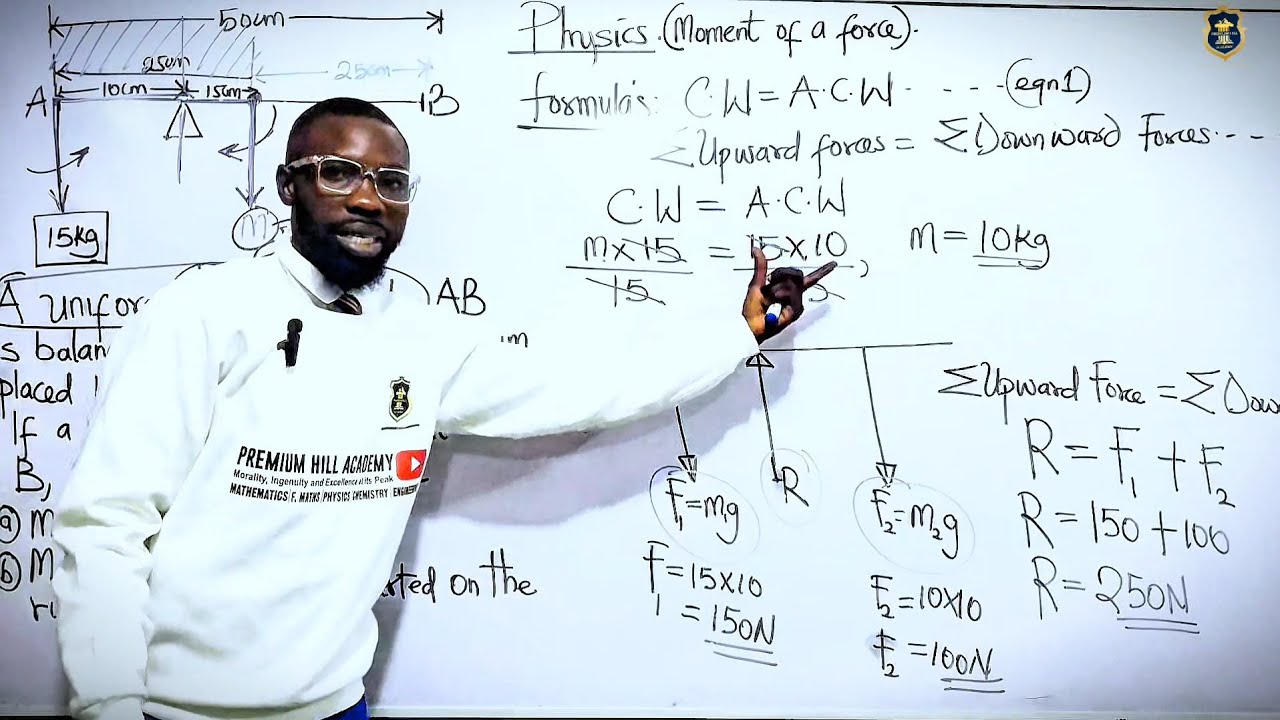 50cm
25cm
25cm
10cm
15cm
A
B
15kg
m
A unifor
AB
s balan
m
placed
If a
B,
a m
b M
rted on the
ru
Physics. (Moment of a force).
formula's: C.W = A.C.W - - - - (eqn1)
ΣUpward forces = ΣDownward Forces - - -
C.W = A.C.W
m×15 = 15×10, m = 10kg
15
F₁=m₁g
R
F₂=m₂g
F₁=15×10
=150N
F₂=10×10
F₂=100N
ΣUpward Force = ΣDow
R = F₁ + F₂
R = 150+100
R = 250N
PREMIUM HILL ACADEMY
Morality, Ingenuity and Excellence at its Peak
MATHEMATICS | F. MATHS | PHYSICS | CHEMISTRY | ENGINEER